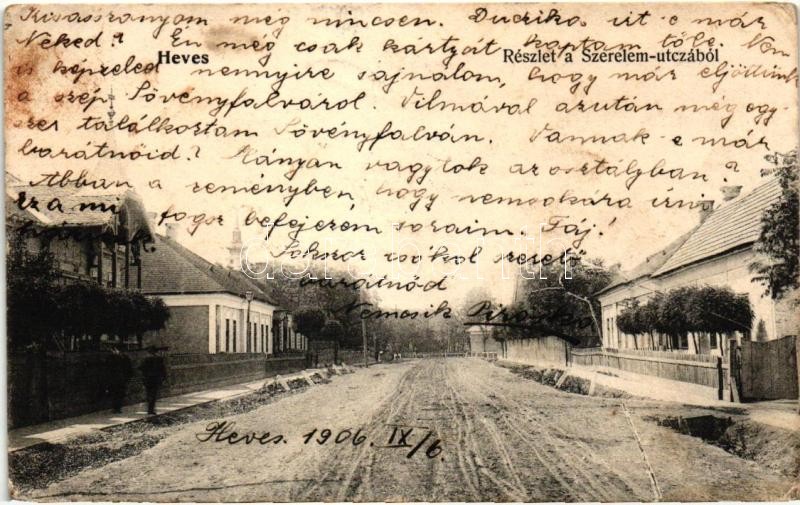 Kisasszonyom még nincsen. Duczika irt-e már
Neked? Én még csak kártyát kaptam tőle. Nem
Heves
Részlet a Szerelem-utczából
is képzeled mennyire sajnálom, hogy már eljöttünk
a szép Sövényfalváról. Vilmával azután még egy-
szer találkoztam Sövényfalván. Vannak-e már
barátnőid? Hányan vagytok az osztályban?
Abban a reményben, hogy nemsokára irsz
befejezem soraim. Fáj!
Sokszor csókol szerető
barátnőd
Nemcsik Piroska
Heves. 1906. IX/6.